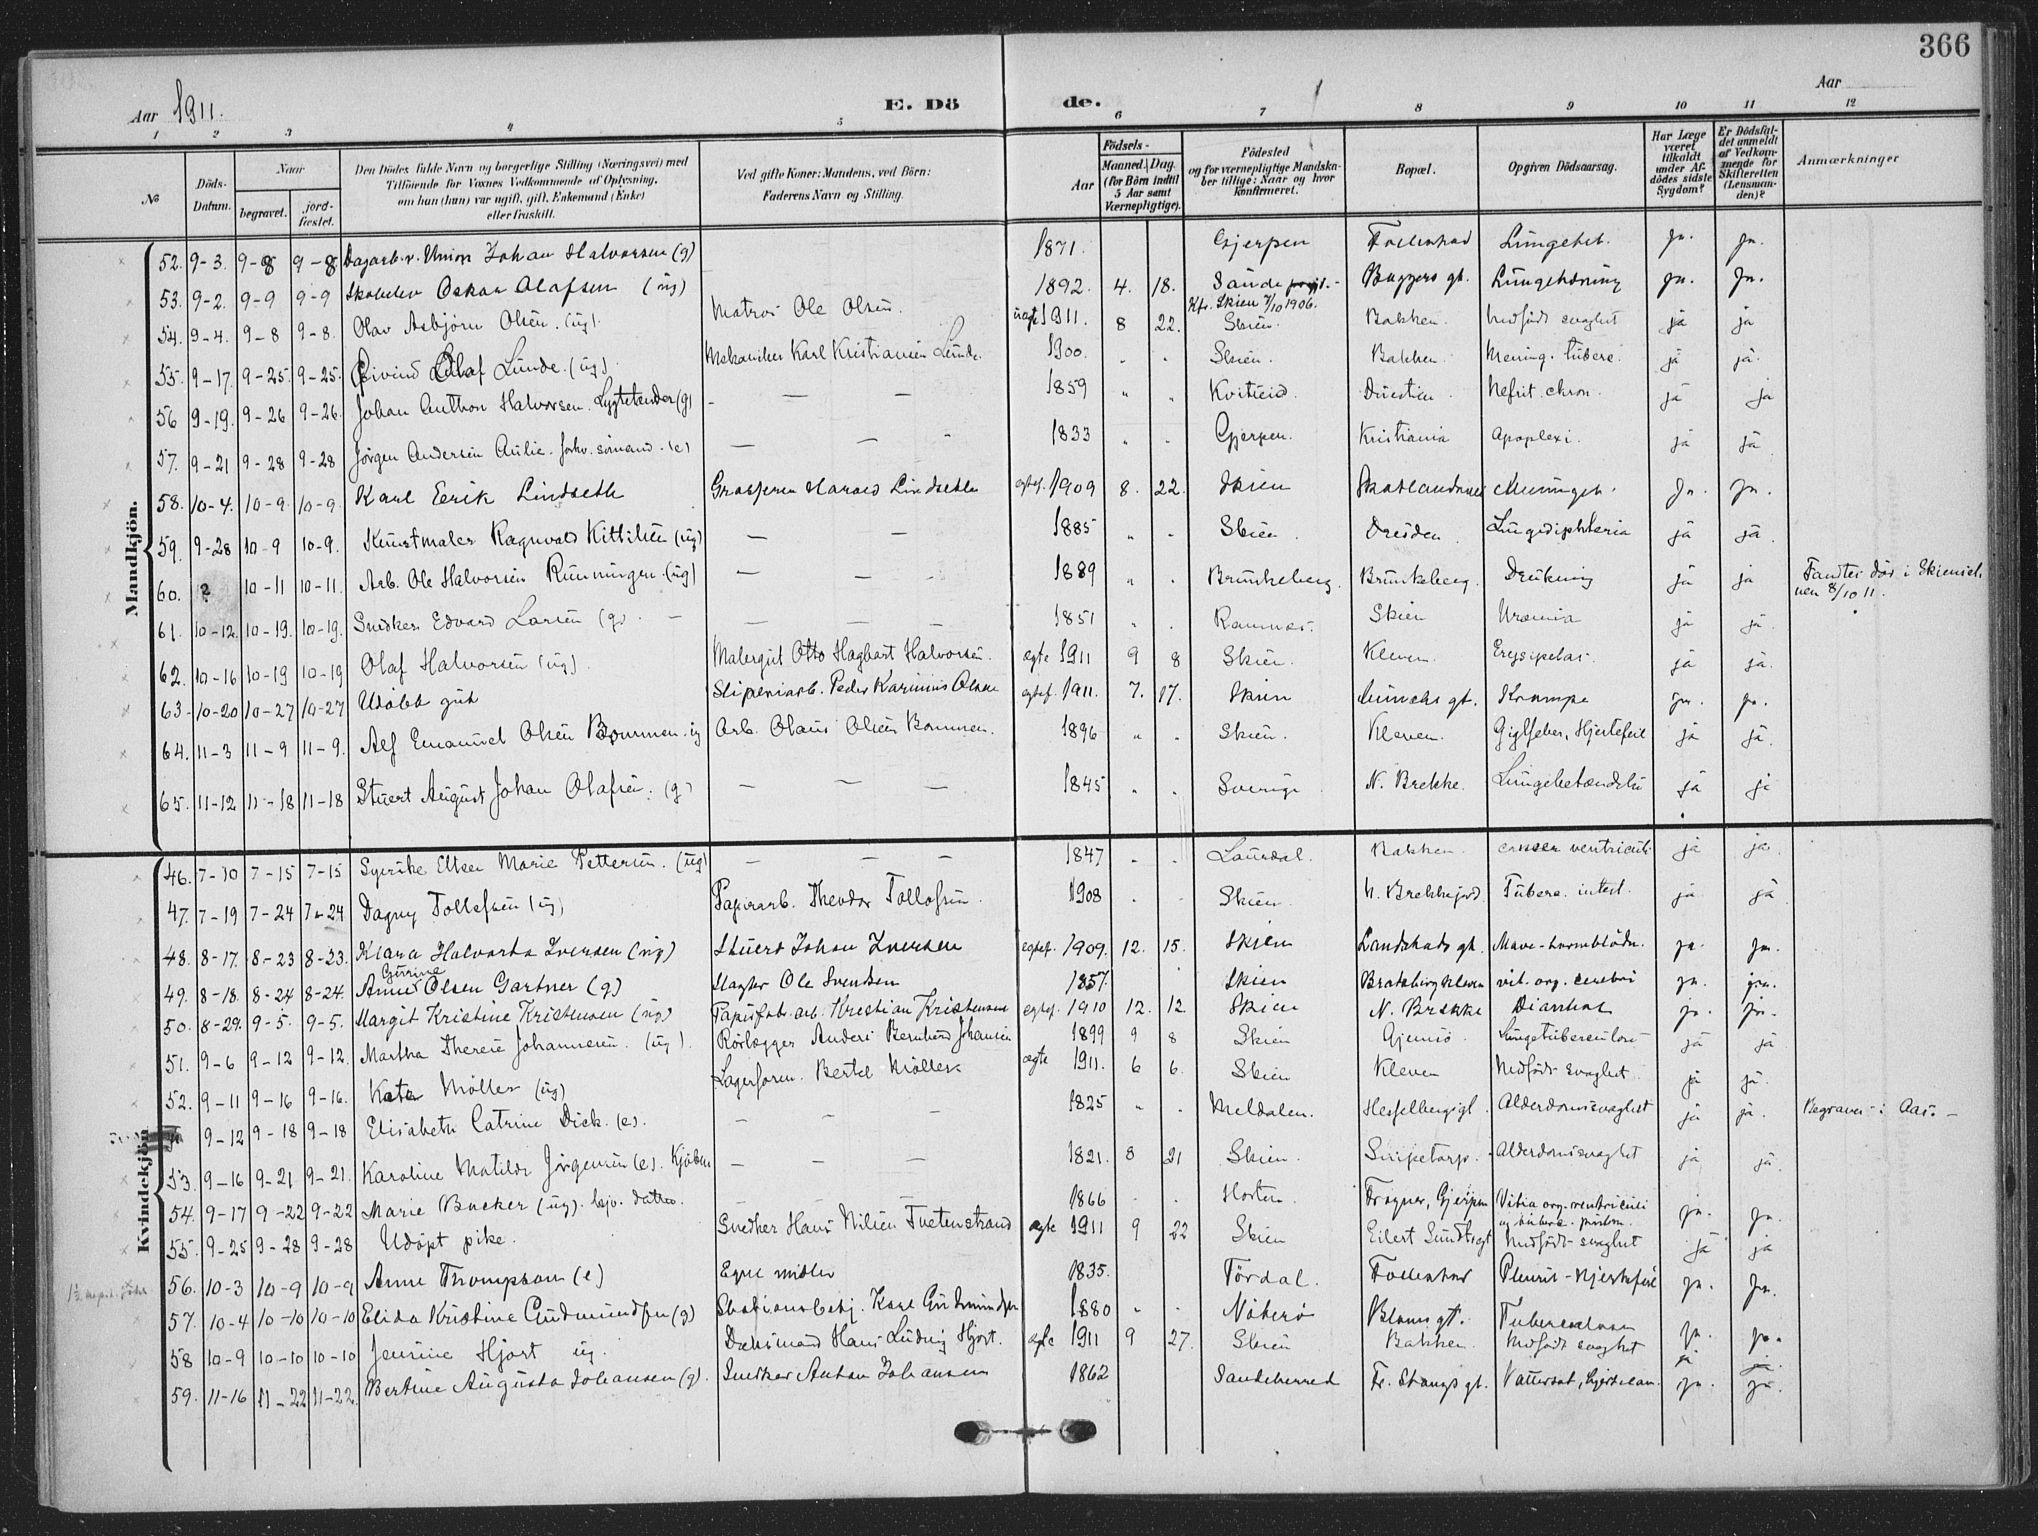 366
Aar 1911.
E. Dö de.
Aar
1 2 3 4 5 6 7 8 9 10 11 12
№ Döds-Datum. Naar begravet. jord-fæstet. Den Dödes fulde Navn og borgerlige Stilling (Næringsvei) med Tilföiende for Voxnes Vedkommende af Oplysning, om han (hun) var ugift, gift, Enkemand (Enke) eller fraskilt. Ved gifte Koner: Mandens, ved Börn: Faderens Navn og Stilling. Födsels- Aar Maaned. Dag. (for Börn indtil 5 Aar samt Værnepligtige). Födested og for værnepligtige Mandskaber tillige: Naar og hvor konfirmeret. Bopæl. Opgiven Dödsaarsag. Har Læge været tilkaldt under Afdödes sidste Sygdom? Er Dödsfaldet anmeldt af Vedkommende for Skifteretten (Lensmanden)? Anmærkninger
Mandkjön.
52. 9-3. 9-8 9-8 Dagarb. v. Union Johan Halvorsen (g) 1871. Gjerpen Follestad Lungetub. ja. ja.
53. 9-2. 9-9 9-9 Skoelev Oskar Olafsen (ug) 1892. 4. 18. Sande Kfr. Skien 7/10 1906. Byggers gt. Lungetæring ja. ja.
54. 9-4. 9-8 9-8. Olav Asbjörn Olsen. (ug). Matros Ole Olsen. uægte 1911. 8 22. Skien. Bakken. Medfödt svaghet ja ja
55. 9-17. 9-25. 9-25. Eivind Olaf Lunde. (ug). Mekaniker Karl Kristiansen Lunde. 1900. " " Skien. Bakken. Mening. tuberc. ja ja.
56 9-19. 9-26 9-26. Johan Anthon Halvorsen. Lygtetænder (g) - — — 1859 " " Kviteid. Duestien. Nefrit. chron. ja ja
57. 9-21 9-28 9-28 Jörgen Andersen Aulie. forhv. sömand. (e) — — 1833 " " Gjerpen. Kristiania Apoplexi. ja ja
58. 10-4. 10-9. 10-9. Karl Eerik Lindseth Grosserer Harald Lindseth egtef. 1909 8. 22. Skien Skotlandsvei Meninget. ja. ja.
59. 9-28 10-9 10-9. Kunstmaler Ragnvald Kittilsen (ug) — — 1885 " " Skien. Dresden. Lungediphteria ja ja.
60. ? 10-11 10-11. Arb. Ole Halvorsen Runningen. (ug) — - 1889 " " Brunkeberg. Brunkeberg. Drukning ja ja Fandtes död i Skienselven 8/10 11.
61. 10-12. 10-19. 10-19. Snedker Edvard Larsen (g) — — — 1851 " . Ramnæs. Skien Uræmia ja ja.
62. 10-16 10-19 10-19 Olaf Halvorsen (ug). Malersvd Otto Hagbart Halvorsen. ægte 1911 9 8 Skien. Kleven. Erysipelas. ja ja.
63. 10-20 10-27 10-27 Udöbt gut Sliperiarb. Peder Karinius Olsen egtef. 1911. 7. 17. Skien Munchs gt. Krampe ja. ja.
64. 11-3 11-9 11-9. Alf Emanuel Olsen Bommen. ug Arb. Olaus Olsen Bommen. 1896 " " Skien. Kleven. Gigtfeber, Hjertefeil ja ja.
65. 11-12 11-18 11-18 Stuert August Johan Olafsen. (g) — — — 1845 " . Sverige N. Brekke. Lungebetændelse ja ja
Kvindekjön
46. 7-10 7-15 7-15 Syerske Elsen Marie Pettersen. (ug) — — — 1847 " . Laurdal. Bakken. cancer ventriculi ja ja.
47. 7-19 7-24 7-24 Dagny Tollefsen (ug) Papirarb. Theodor Tollofsen. 1908 . . Skien. N. Brekkejord. Tuberc. intest. ja ja
48. 8-17. 8-23 8-23. Klara Halvorta Iversen (ug) Stuert Johan Iversen egtef. 1909. 12. 15. Skien Landstads gt. Mave-tarmblödn. ja. ja.
49. 8-18. 8-24 8-24. Anne Gurine Olsen Gartner (g) Slagter Ole Svendsen 1857. Skien Bratsbergkleven vit. org. cerebri ja. ja.
50. 8-29. 9-5. 9-5. Margit Kristine Kristensen (ug) Papirfab. arb. Kristian Kristensen egtef. 1910 12. 12. Skien N. Brekke Diarrhoe ja. ja.
51. 9-6 9-12 9-12. Martha Therese Johannesen. (ug). Rörlægger Anders Bernhard Johansen 1899 9 8 Skien Gjemsö. Lungetuberculose ja ja
52. 9-11 9-16 9-16. Kate Möller (ug) Lagerforv. Bertel Möller ægte 1911. 6 6. Skien Kleven Medfödt svaghet ja ja.
9-12 9-18 9-18 Elisabeth Catrine Dick. (e). — 1825 " . Meldalen. Hesselbergsgt. Alderdomssvaghet ja ja. Begravet i Aas. -
53. 9-16 9-21 9-21. Karoline Matilde Jörgensen (e). — — — 1821. 8 21 Skien. Snipetorp. Alderdomssvaghet ja ja.
54. 9-17 9-22 9-22 Marie Backer (ug). — — 1866 . . Horten. Frogner, Gjerpen Vitia org. ventriculi ja. ja.
55. 9-25 9-28 9-28 Udöpt pike. Snedker Hans Nilsen Tuftenstrand ægte 1911 9 22 Skien Eilert Sundtsgt Medfödt svaghet ja ja
56. 10-3 10-9 10-9 Anne Thompson (e) Egne midler 1835. Tördal. Follestad Pleurit-Hjertefeil ja. ja.
57. 10-4 10-10 10-10 Elida Kristine Gudmundsen (g) Stationsbetj. Karl Gudmundsen 1880 " . Nöterö Bloms gt. Tuberculose ja. ja.
58 10-9 10-10 10-10 Jensine Hjort ug. Hans Ludvig Hjort. ægte 1911 9 27. Skien Bakken. Medfödt svaghet ja ja.
59. 11-16 11-22 11-22. Bertine Augusta Johansen (g). Snedker Anton Johansen 1862 Sandeherred Fr. Stangs gt. Vattersot, ja. ja.